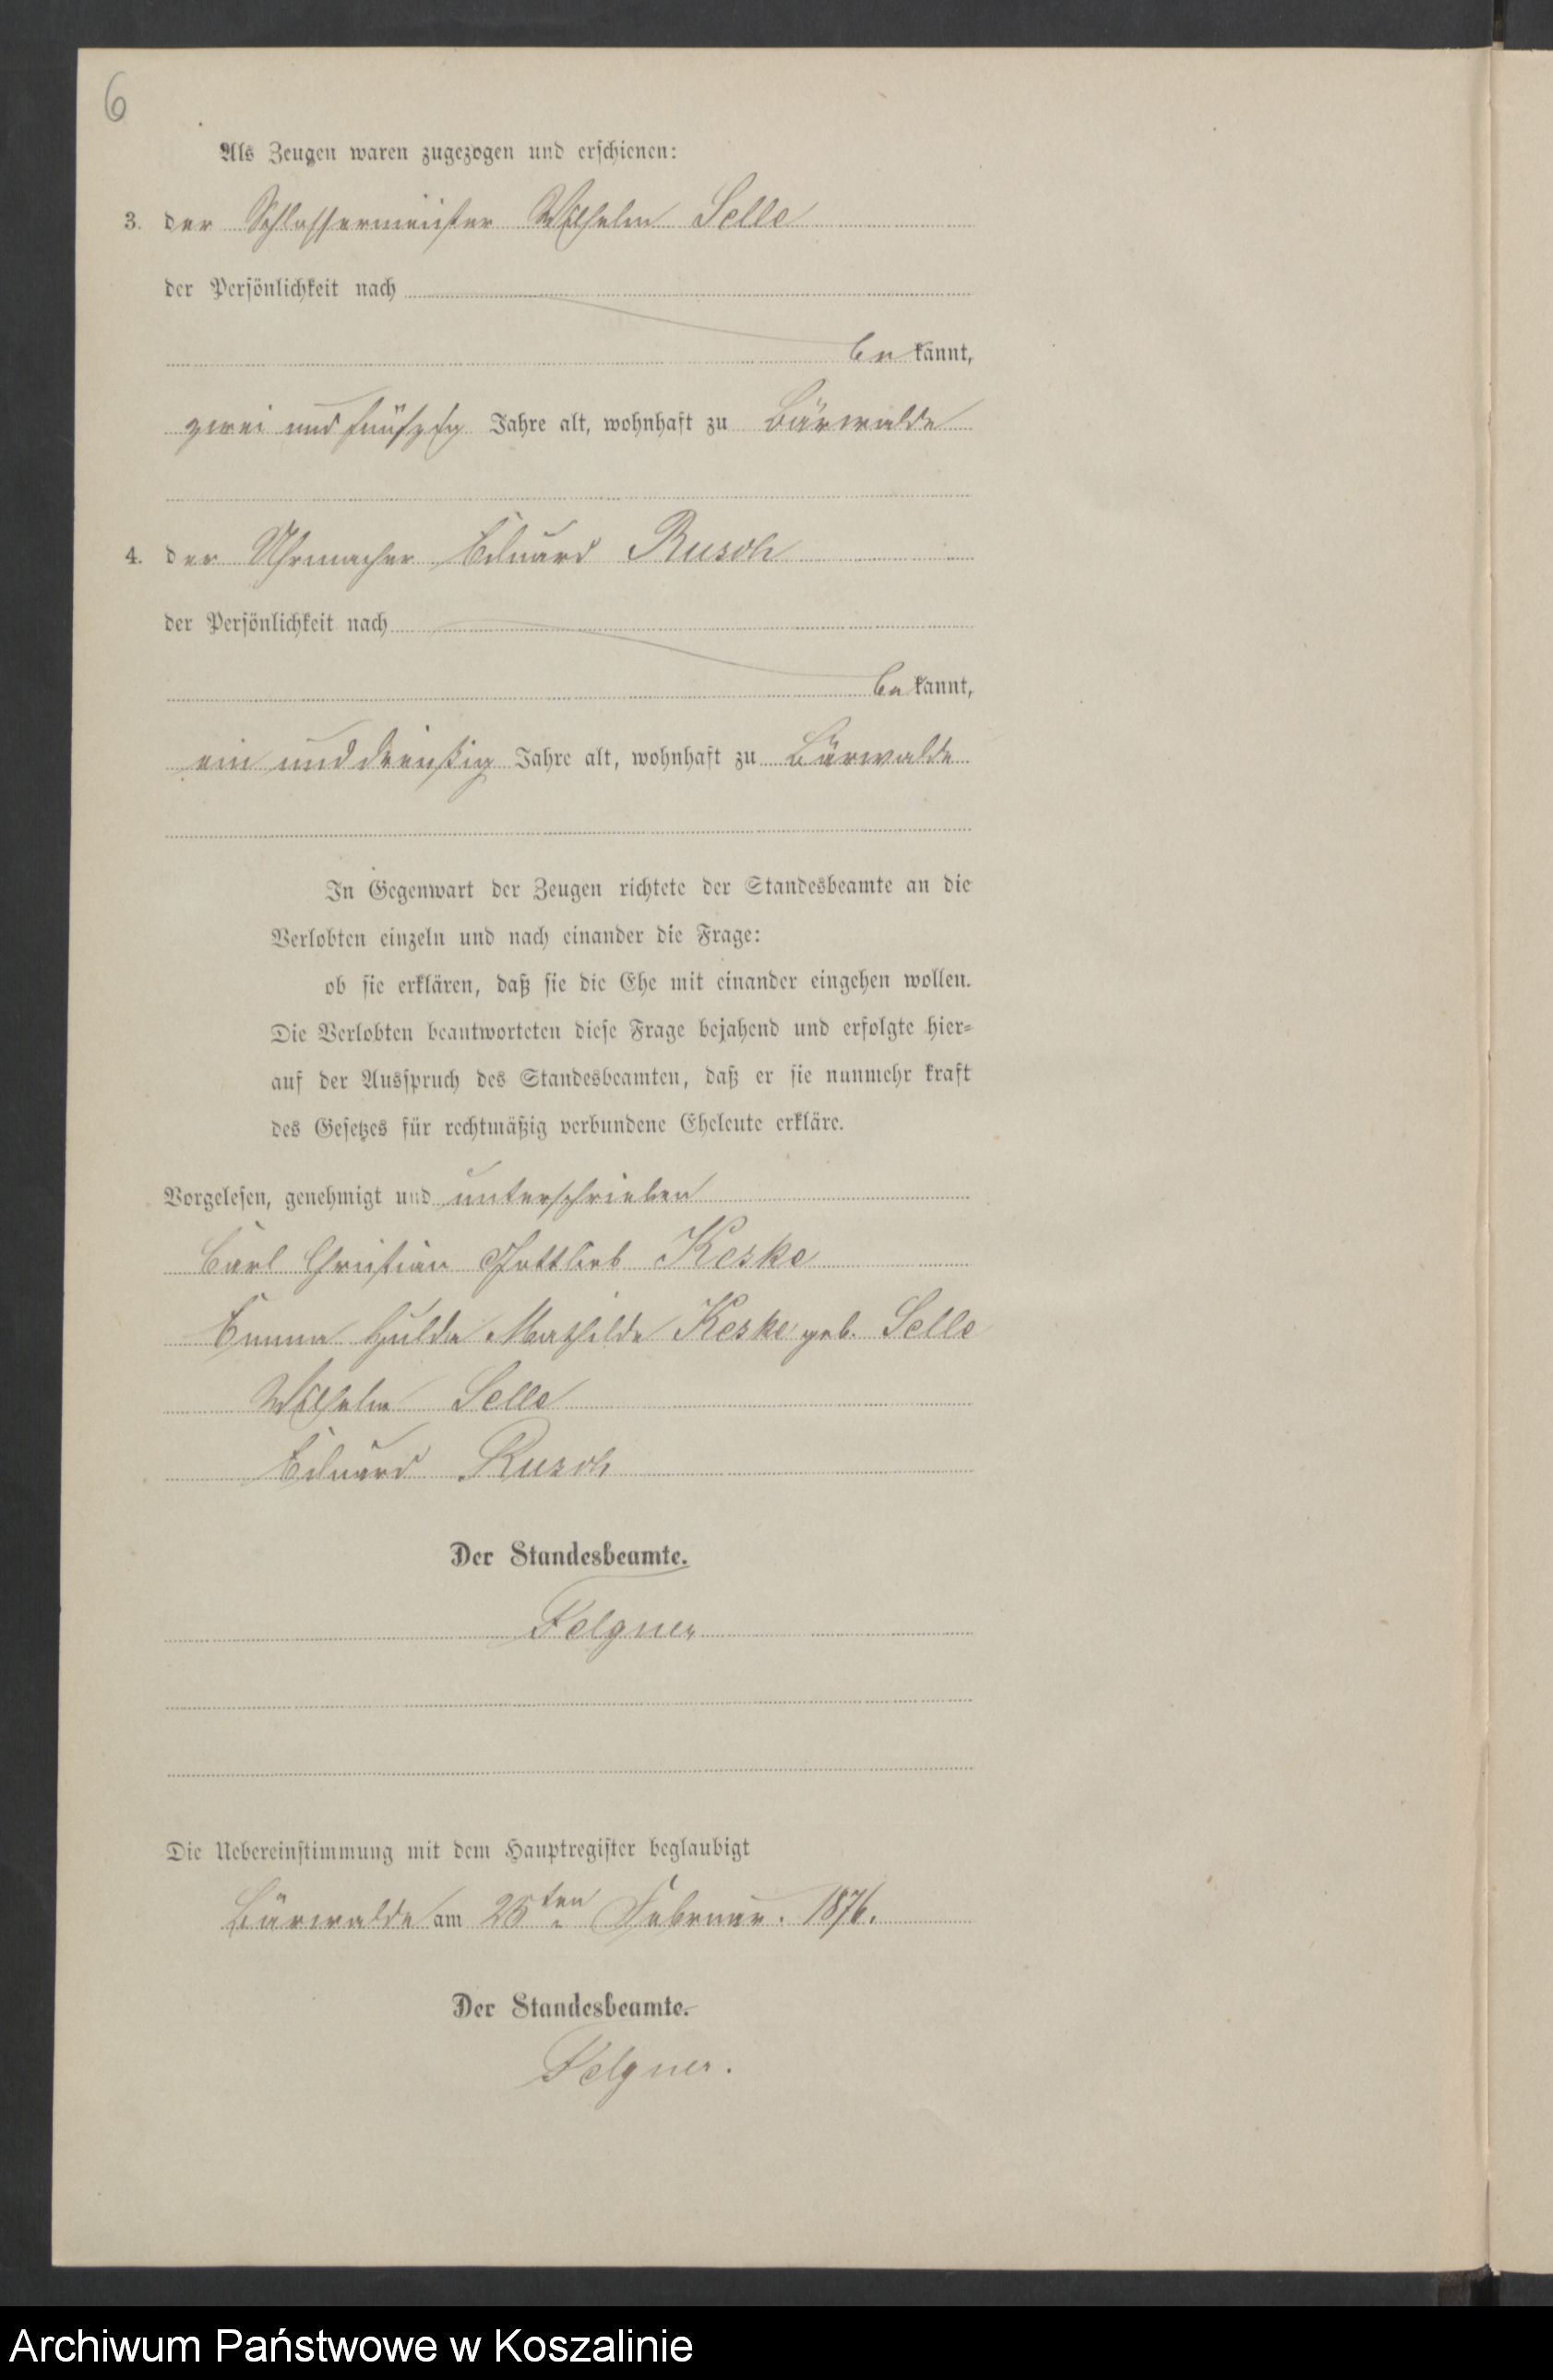 6
Als Zeugen waren zugezogen und erschienen:
3. der Schlossermeister Wilhelm Selle
der Persönlichkeit nach
be kannt,
zwei und fünfzig Jahre alt, wohnhaft zu Bärwalde
4. der Uhrmacher Eduard Rusch
der Persönlichkeit nach
be kannt,
ein und dreißig Jahre alt, wohnhaft zu Bärwalde
In Gegenwart der Zeugen richtete der Standesbeamte an die
Verlobten einzeln und nach einander die Frage:
ob sie erklären, daß sie die Ehe mit einander eingehen wollen.
Die Verlobten beantworteten diese Frage bejahend und erfolgte hier-
auf der Ausspruch des Standesbeamten, daß er sie nunmehr kraft
des Gesetzes für rechtmäßig verbundene Eheleute erkläre.
Vorgelesen, genehmigt und unterschrieben
Carl Christian Gottlieb Keske
Emma Hulda Mathilde Keske geb. Selle
Wilhelm Selle
Eduard Rusch
Der Standesbeamte.
Felgner
Die Uebereinstimmung mit dem Hauptregister beglaubigt
Bärwalde am 25ten Februar. 1876.
Der Standesbeamte.
Felgner.
Archiwum Państwowe w Koszalinie